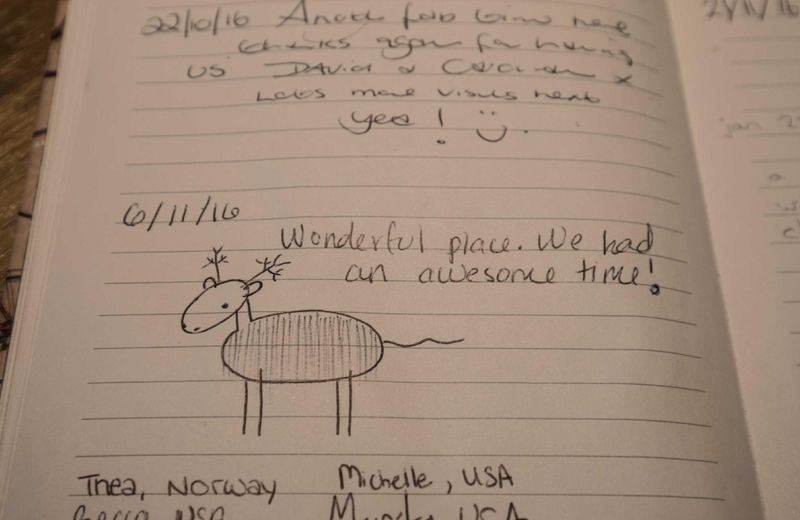 22/10/16 Another fab time here
thanks again for having
us David &
Lots more visits next
year! :)
6/11/16
Wonderful place. We had
an awesome time!
Thea, NORWAY
Michelle, USA
Becca, USA
USA
21/11/16